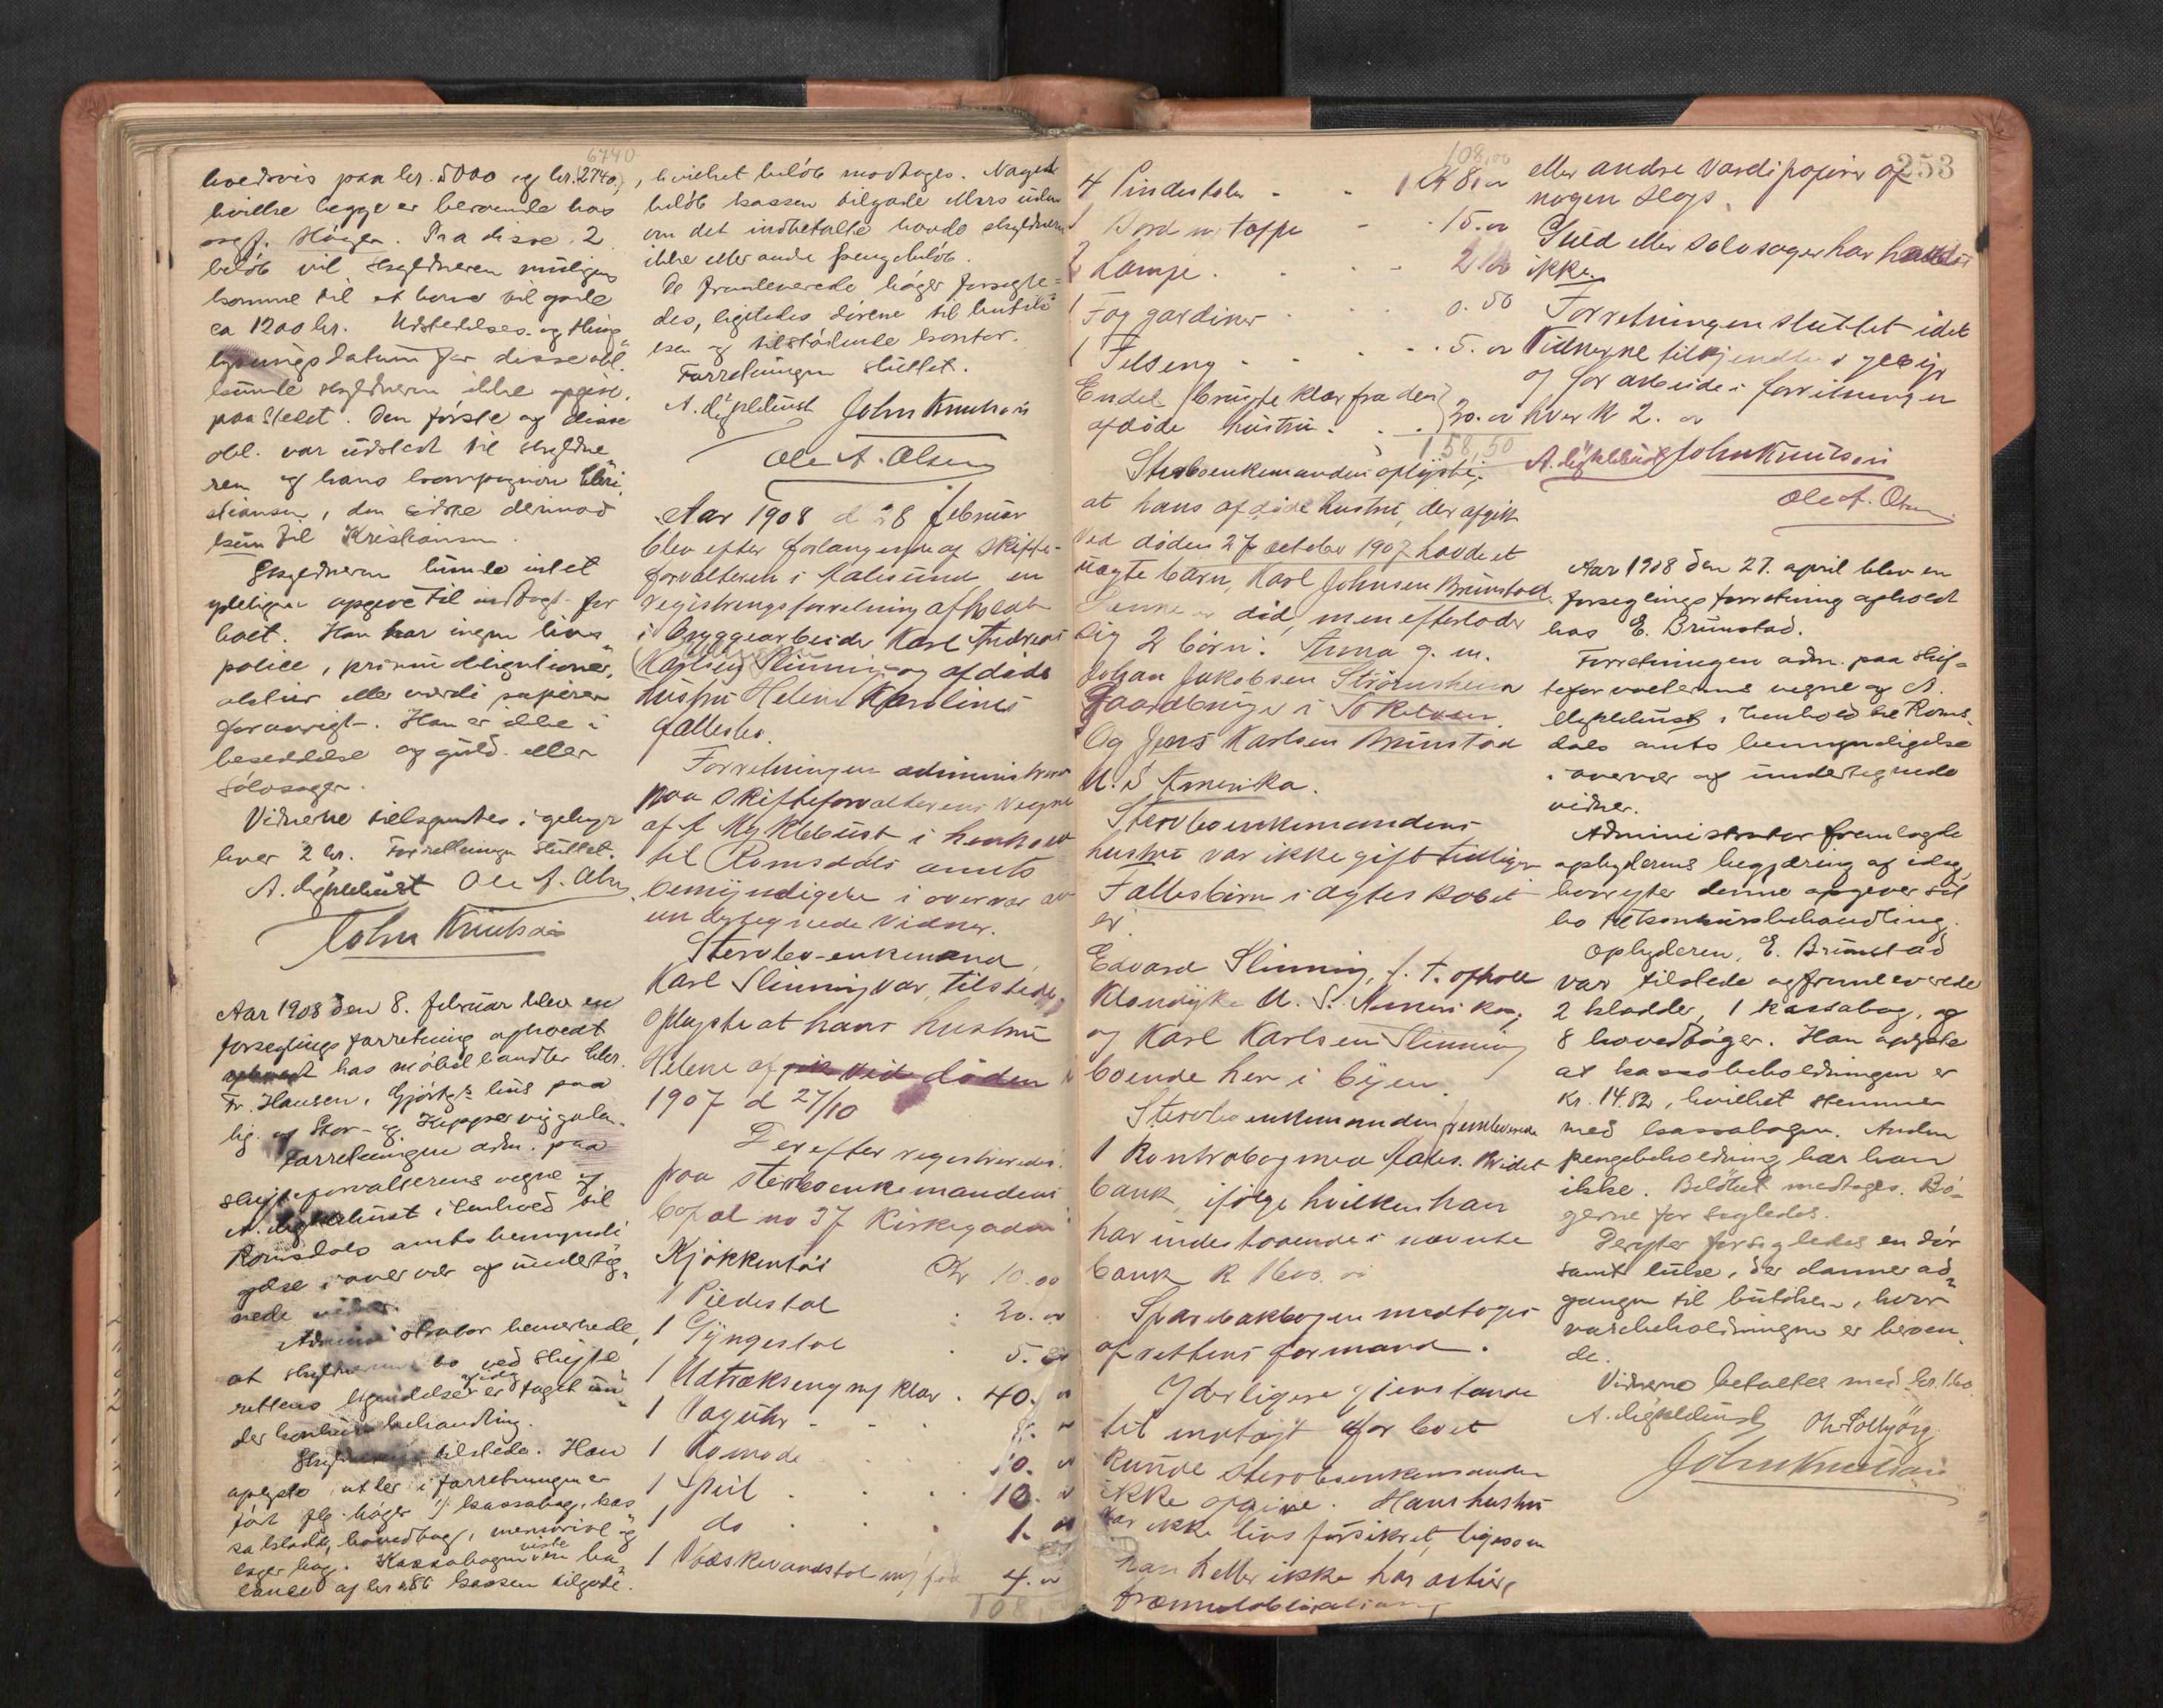 6740
hvedsvis paa kr. 5000 og kr. (2740),
hvilke begge er beroende hos
sagf. Höigen. Fra disse 2
beløb vil skyldneren muligens
komme til at have tilgode
ca 1200 kr. Udstedelses- og thing-
lysningsdatum for disse obl.
kunde skyldneren ikke opgive
paa stedet. Den første af disse
obl. var udstedt til skyldne-
ren og hans kompagnon Chri-
stiansen, den sidste derimod
kun til Kristiansen.
Skyldneren kunde intet
yderligere opgive til indtægt for
boet. Han har ingen livs-
police, præmieobligationer,
aktier eller værdipapirer
forøvrigt. Han er ikke i
besiddelse af guld- eller
sølvsager.
Vidnerne tillagdes i gebyr
hver 2 kr. Forretningen sluttet.
A. Myklebust Ole A. Olsen
John Knutson
Aar 1908 den 8. februar blev en
forseglingsforretning afholdt
hos møbelhandler Chr.
Fr. Hansen, i hus paa
hj. af Stor- og Kipperviggaden.
Forretningen adm. paa
skifteforvalterens vegne af
A. Myklebust i henhold til
Romsdals amts bemyndi-
gelse i overvær af underteg-
nede vidner.
Administrator bemerkede,
at skyldnerens bo ved skifte-
rettens kjendelse er taget un-
der konkursbehandling.
Skyldneren tilstede. Han
oplyste at der i forretningen er
ført flg. bøger: 1) kassabog, kas-
sakladd, hovedbog, memorial og
lagerbog. Kassabogen viste ba-
lance af kr 2.86 kassen tilgode
, hvilket beløb modtoges. Nagede
beløb kassen tilgode Mars uden
om det indbetalte havde skyldneren
ikke eller andre pengebeløb.
De fremleverede bøger forsegle-
des, ligeledes dørene til butik-
ken og tilstødende kontor.
Forretningen sluttet.
A. Myklebust John Knutson
Ole A. Olsen
Aar 1908 d 28 februar
blev efter forlangende af skifte-
forvalteren i Aalesund en
registreringsforretning afholdt
i bryggearbeider Karl Andreas
Karlsen Slinning og afdøde
hustru Helene Karolines
fællesbo.
Forretningen administreret
paa skifteforvalterens vegne
af A Myklebust i henhold
til Romsdals amts
bemyndigelse i overvær av
undertegnede vidner.
Stervbo-enkemand
Karl Slinning var tilstede,
oplyste at hans hustru
Helene afgik ved døden
1907 d 27/10
Derefter registreredes
paa stervboenkemandens
bopæl no 37 Kirkegaden
Kjøkkentøi Kr 10.00
1 Piedestal " 20.00
1 Gyngestol 5.00
1 Udtrækseng m/ klær . 40. 00
1 Væguhr - - 8. 00
1 Komode . . . 10. 00
1 Speil . . . 10. 00
1 do . . . 1. 00
1 Vaskevandstol m/ fad 4. 00
108,00
108,00
4 Pindestoler - - 8.00
1 Bord m/ tæppe - 15.00
2 Lamper . . . - 2.00
1 Fag gardiner . . . 0.50
1 Feltseng - - - 5.00
Endel brugte klær fra den
afdøde hustru . . . 20.00
158,50
Stervboenkemanden oplyste,
at hans afdøde hustru, der afgik
ved døden 27 october 1907 havde et
uægte barn, Karl Johnsen Brunstad.
Denne er død, men efterlader
sig 2 børn: Anna g. m.
Johan Jakobsen Strömsheim
Gaardbruger i Sökelven.
Og Jens Karlsen Brunstad
U. S Amerika.
Stervboenkemandens
hustru var ikke gift tidligere
Fællesbørn i ægteskabet
er:
Edvard Slinning, f. t. ophold
Klondyke U. S. Amerika,
og Karl Karlsen Slinning
boende her i byen
Stervboenkemanden fremleverede
1 Kontrabog med Aales. Kredit-
bank, ifølge hvilken han
har indestaaende i nævnte
bank K 1600.00
Sparebankbogen medtoges
af rettens formand.
Yderligere gjenstande
til indtægt for boet
kunde stervboenkemanden
ikke opgive. Hans hustru
var ikke livsforsikret, ligesom
han heller ikke har aktier,
præmieobligationer,
253
eller andre værdipapirer af
nogen slags.
Guld eller sølvsager har han
ikke.
Forretningen sluttet idet
Vidnerne tilkjendtes i gebyr
og for arbeide i forretningen
hver K 2.00
A. Myklebust John Knutson
Ole A. Olsen
Aar 1908 den 27. april blev en
forseglingsforretning afholdt
hos E. Brunstad.
Forretningen adm. paa skif-
teforvalterens vegne af A.
Myklebust i henhold til Roms-
dals amts bemyndigelse
i overvær af undertegnede
vidner.
Administrator fremlagde
opbyderens begjæring af idag,
hvorefter denne opgiver sit
bo til konkursbehandling.
Opbyderen, E. Brunstad
var tilstede og fremleverede
2 kladder, 1 kassabog, og
8 hovedbøger. Han oplyste
at kassabeholdningen er
kr. 14.82, hvilket stemmer
med kassabogen. Anden
pengebeholdning har han
ikke. Beløbet medtoges. Bø-
gerne forsegledes.
Derefter forsegledes en dør
samt luke, der danner ad-
gangen til butiken, hvor
varebeholdningen er beroen-
de.
Vidnerne betaltes med kr. 1.60.
A. Myklebust Ole Solbjørg
John Knutson